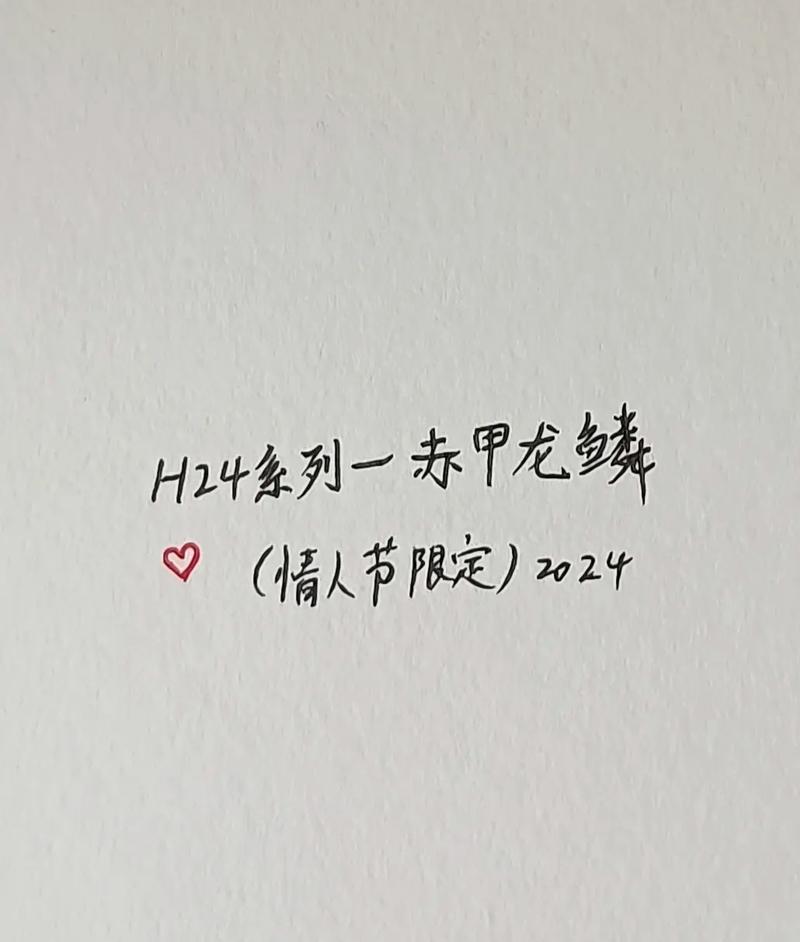 H24系列一赤甲龙鳞
(情人节限定)2024